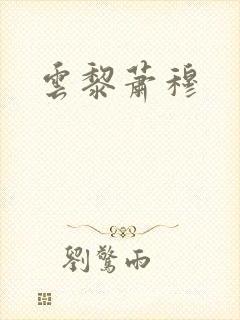 雲黎蕭穆
劉驚雨